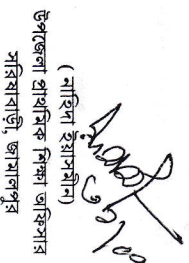 ( নাহিদা ইয়াসমীন)
উপজেলা প্রাথমিক শিক্ষা অফিসার
সরিষাবাড়ী, জামালপুর